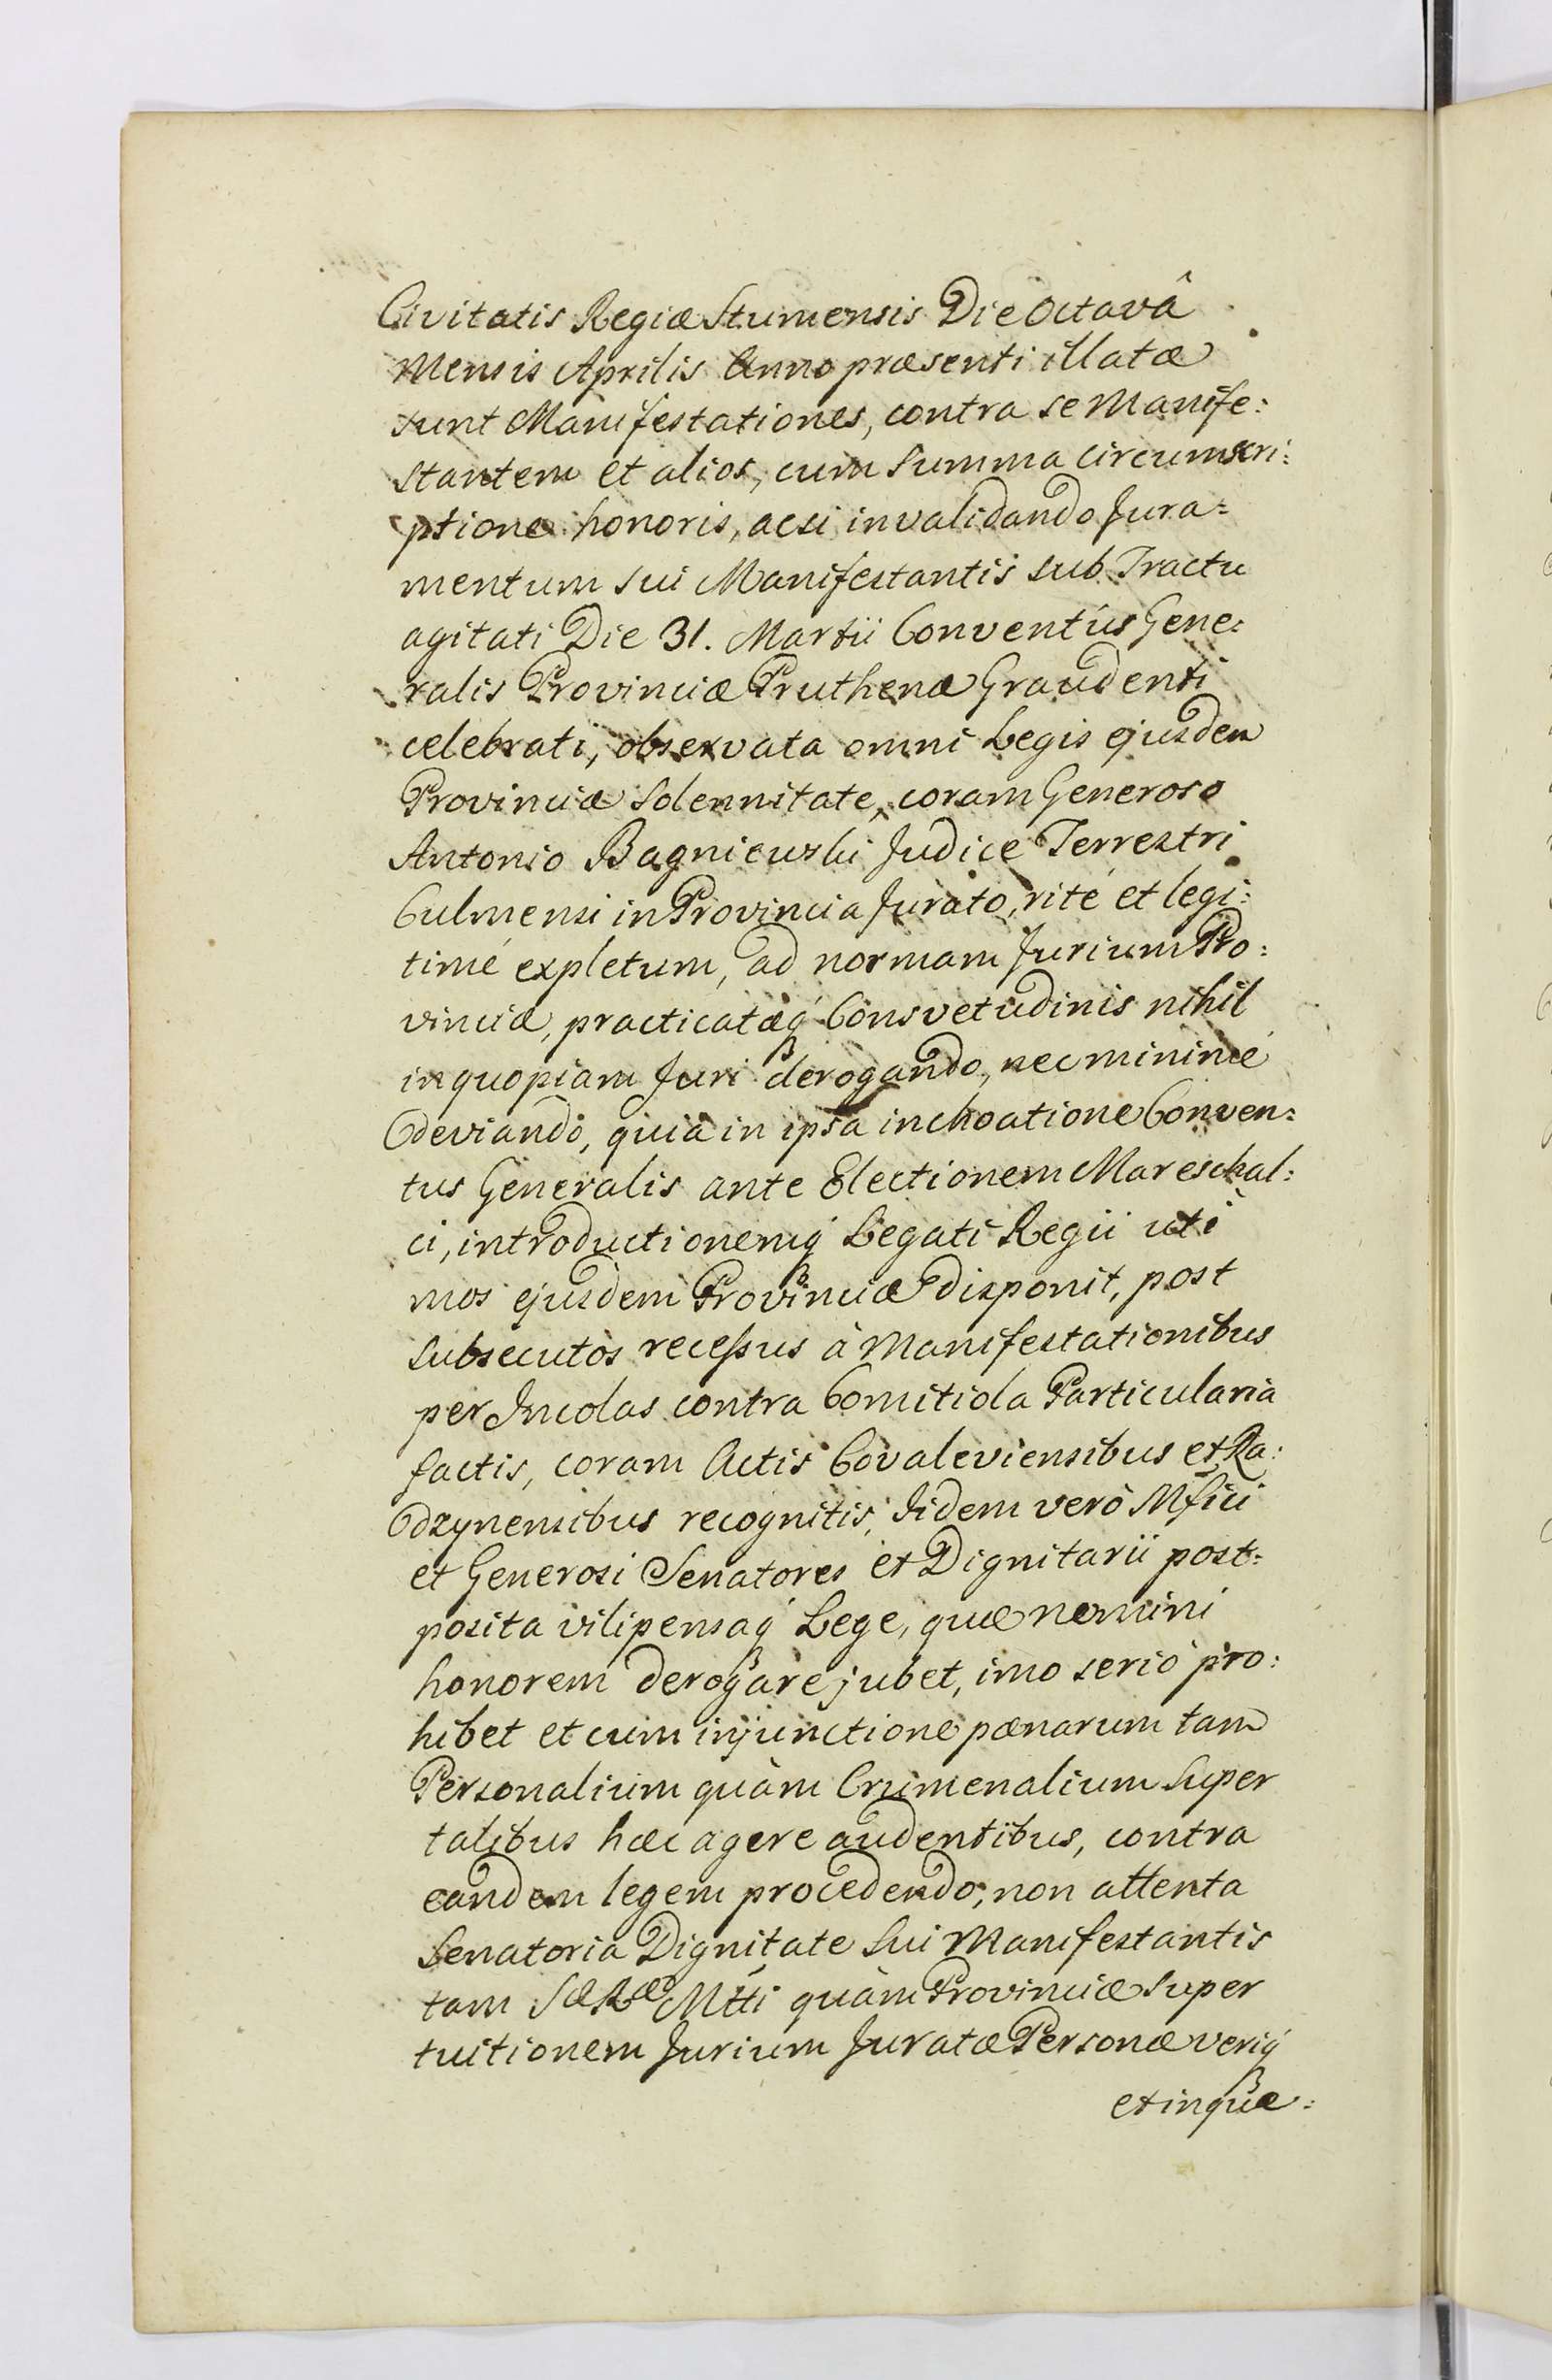 Civitatis Regiæ Stumensis Die Octavâ
Mensis Aprilis Anno præsenti illatæ
sunt Manifestationes, contra se Manife:
stantem et alios, cum summa circumscri:
ptione honoris, acsi invalidando Jura:
mentum sui Manifestantis sub Tractu
agitati Die 31. Martii Conventús Gene:
ralis Provinciæ Pruthenæ Graudenti
celebrati, observata omni Legis ejusdem
Provinciæ Solennitate, coram Generoso
Antonio Bagniewski Judice Terrestri
Culmensi in Provincia Jurato, rité et legi:
timé expletum, ad normam Jurium Pro:
vinciæ, practicatæq́ Consvetudinis nihil
in quopiam Juri derogando, nec minimé
deviando, quia in ipsa inchoatione Conven:
tus Generalis ante Electionem Mareschal:
ci, introductionemq́ Legati Regii uti
mos ejusdem Provinciæ disponit, post
subsecutos recessus à Manifestationibus
per Incolas contra Comitiola Particularia
factis, coram Actis Covaleviensibus et Ra:
dzynensibus recognitis, Iidem verò Mfici
et Generosi Senatores et Dignitarii post:
posita vilipensaq́ Lege, quæ nemini
honorem derogare jubet, imo serió pro:
hibet et cum injunctione pænarum tam
Personalium quàm Crumenalium super
talibus hæc agere audentibus, contra
eandem legem procedendo, non attenta
Senatoria Dignitate Sui Manifestantis
tam SæRæ Mtti quàm Provinciæ super
tuitionem Jurium Juratæ Personæ veriq́
et in quæ: